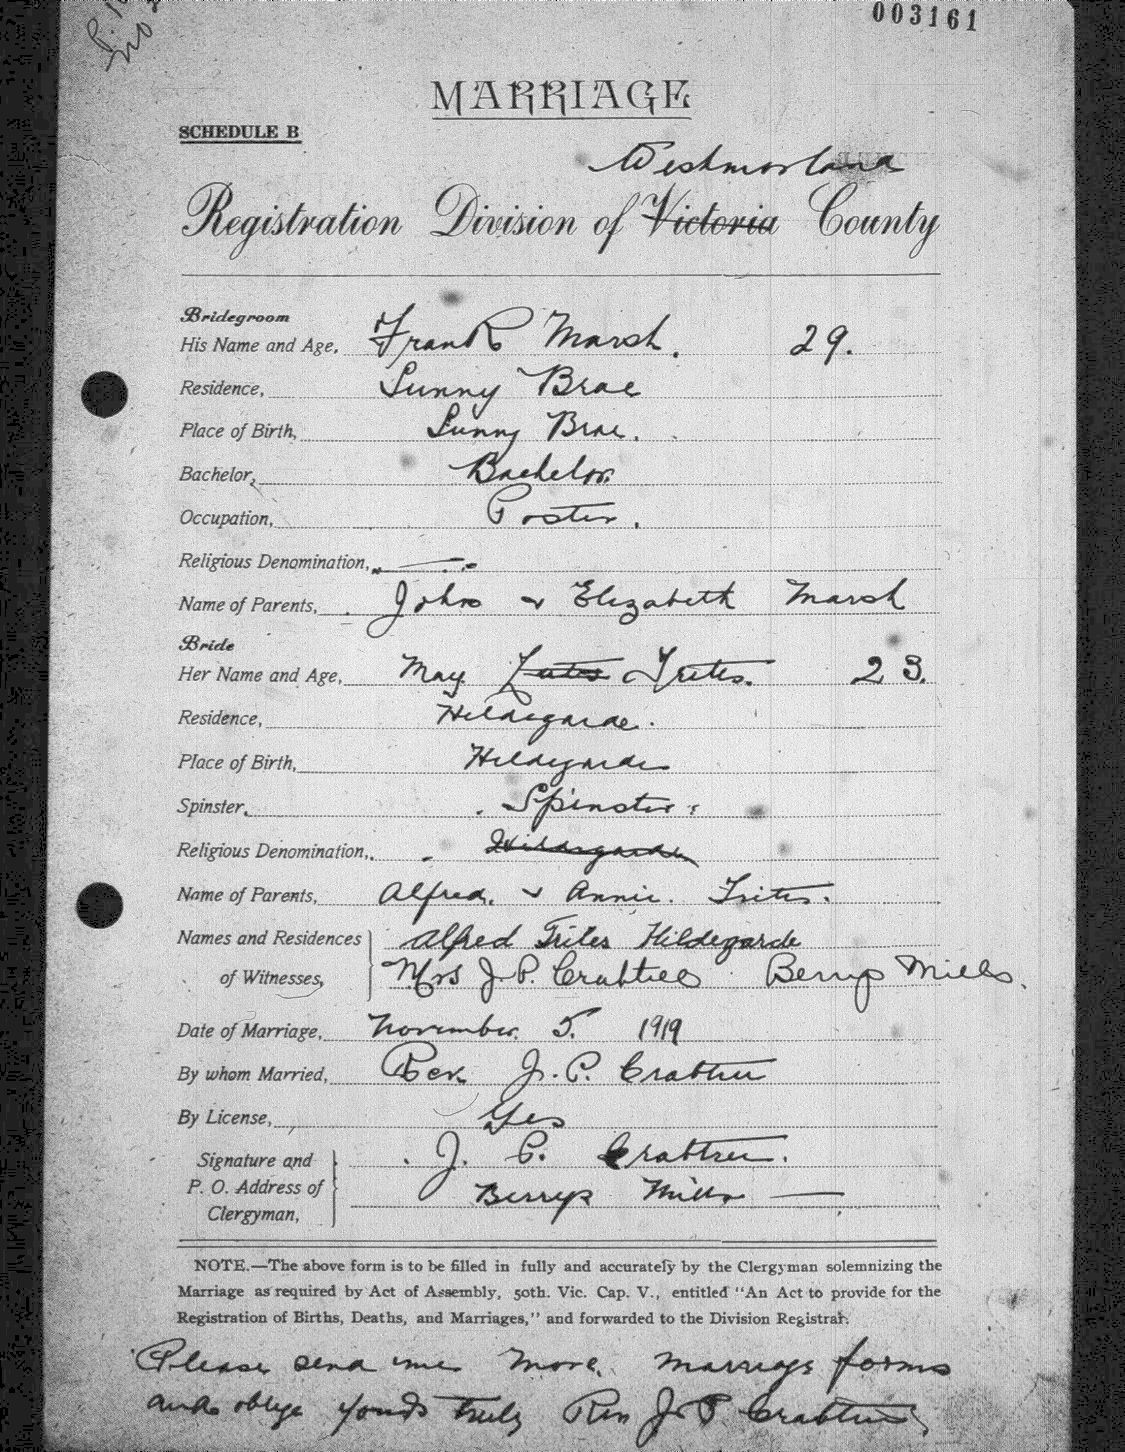 003161
MARRIAGE
SCHEDULE B
Westmorland
Registration Division of Victoria County
Bridegroom
His Name and Age, Frank Marsh. 29.
Residence, Sunny Brae
Place of Birth, Sunny Brae.
Bachelor, Bachelor.
Occupation, Poster.
Religious Denomination, —
Name of Parents, John & Elizabeth Marsh
Bride
Her Name and Age, May Lutes Trites. 23.
Residence, Hildegarde.
Place of Birth, Hildegarde
Spinster, Spinster.
Religious Denomination, Hildegarde
Name of Parents, Alfred. & Annie. Trites.
Names and Residences Alfred Trites Hildegarde
of Witnesses, Mrs J. P. Crabtree Berrys Mills.
Date of Marriage, November. 5. 1919
By whom Married, Rev. J. P. Crabtree
By License, Yes
Signature and J. P. Crabtree.
P. O. Address of Berrys Mills —
Clergyman,
NOTE.—The above form is to be filled in fully and accurately by the Clergyman solemnizing the
Marriage as required by Act of Assembly, 50th. Vic. Cap. V., entitled "An Act to provide for the
Registration of Births, Deaths, and Marriages," and forwarded to the Division Registrar.
Please send me more. marriage forms
and oblige yours truly Rev J. P. Crabtree